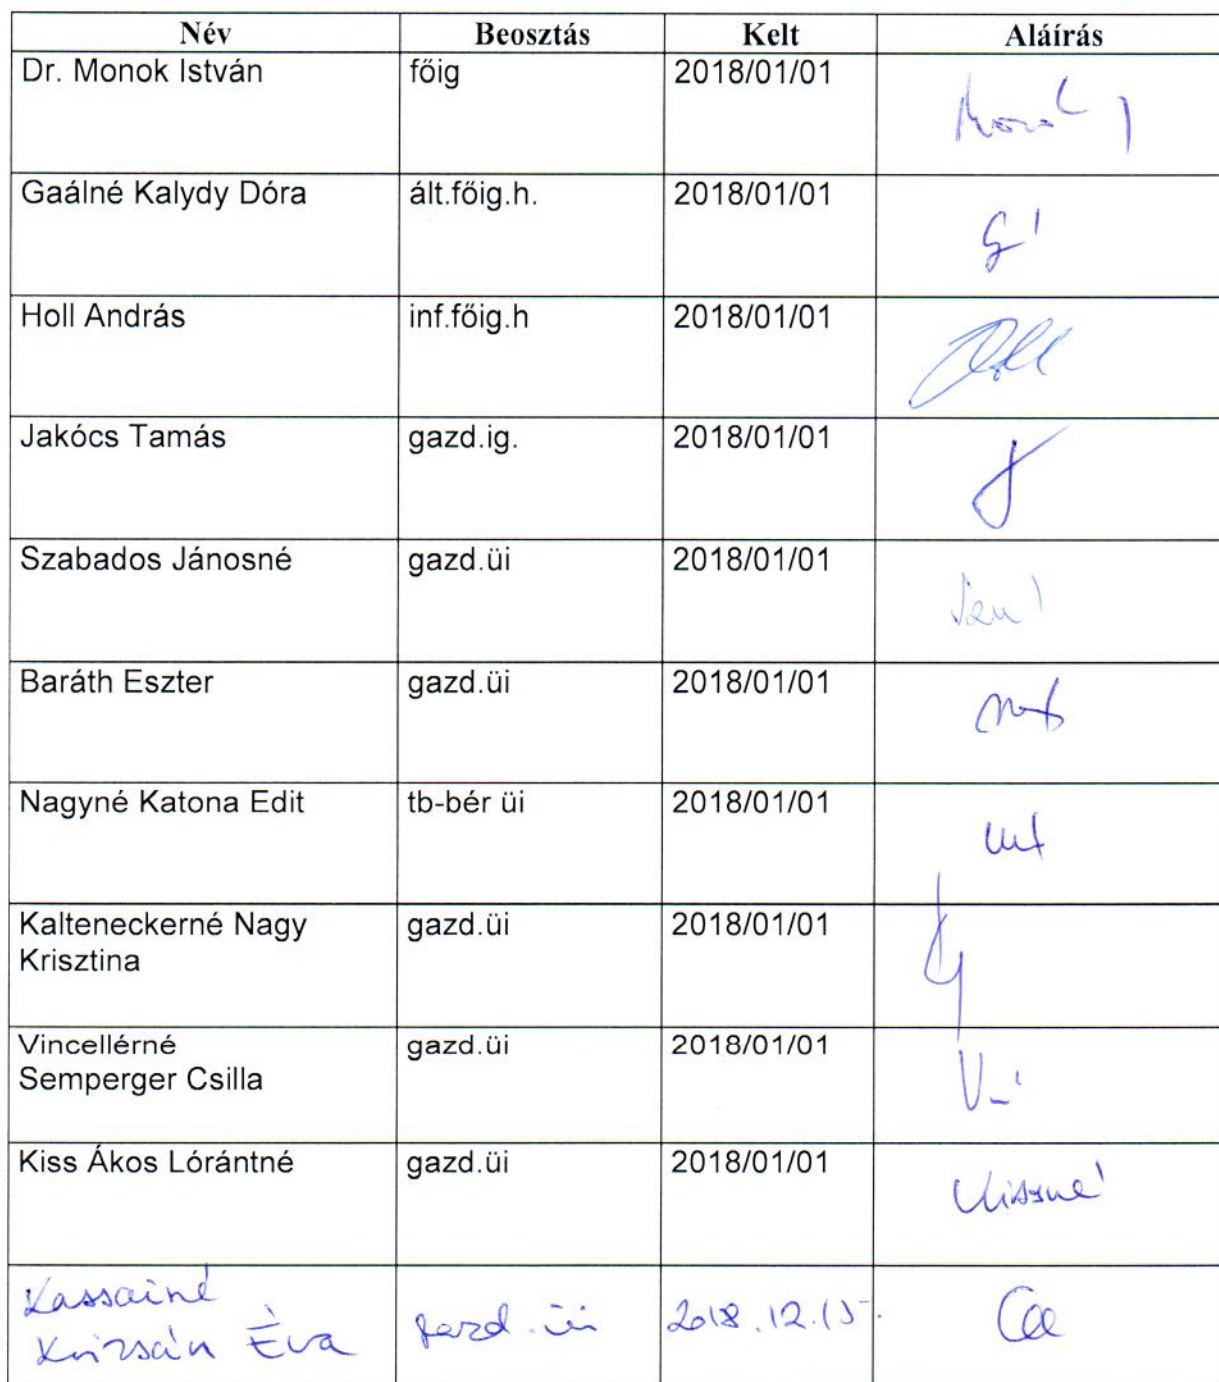 Név Beosztás Kelt Aláírás
Dr. Monok István főig 2018/01/01
Gaálné Kalydy Dóra ált.főig.h. 2018/01/01
Holl András inf.főig.h 2018/01/01
Jakócs Tamás gazd.ig. 2018/01/01
Szabados Jánosné gazd.üi 2018/01/01
Baráth Eszter gazd.üi 2018/01/01
Nagyné Katona Edit tb-bér üi 2018/01/01
Kalteneckerné Nagy gazd.üi 2018/01/01
Krisztina
Vincellérné gazd.üi 2018/01/01
Semperger Csilla
Kiss Ákos Lórántné gazd.üi 2018/01/01
Kissné
Kassainé
Krizsán Éva gazd.üi 2018.12.15.